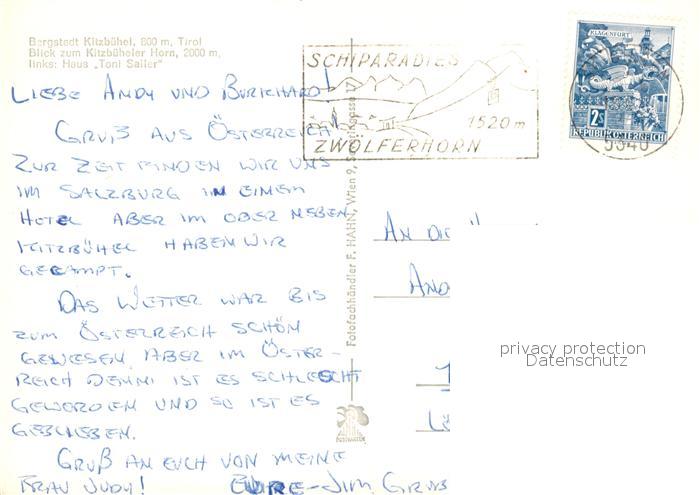 Bergstadt Kitzbühel, 800 m, Tirol
Blick zum Kitzbüheler Horn, 2000 m,
links: Haus „Toni Sailer"
LIEBE ANDY UND BURKHARD!
GRUß AUS ÖSTERREICH!
ZUR ZEIT FINDEN WIR UNS
IM SALZBURG IN EINEM
HOTEL ABER IM OBER NEBEN
KITZBÜHEL HABEN WIR
GECAMPT.
DAS WETTER WAR BIS
ZUM ÖSTERREICH SCHÖN
GEWESEN, ABER IM ÖSTER-
REICH DENN IST ES SCHLECHT
GEWORDEN UND SO IST ES
GEBLIEBEN.
GRUß AN EUCH VON MEINE
FRAU JUDY! EURE - JIM GRUß
SCHIPARADIES
1520 m
ZWÖLFERHORN
KLAGENFURT
2S
REPUBLIK ÖSTERREICH
5340
Fotofachhändler F. HAHN, Wien 9,
AN DIE
AND
privacy protection
Datenschutz